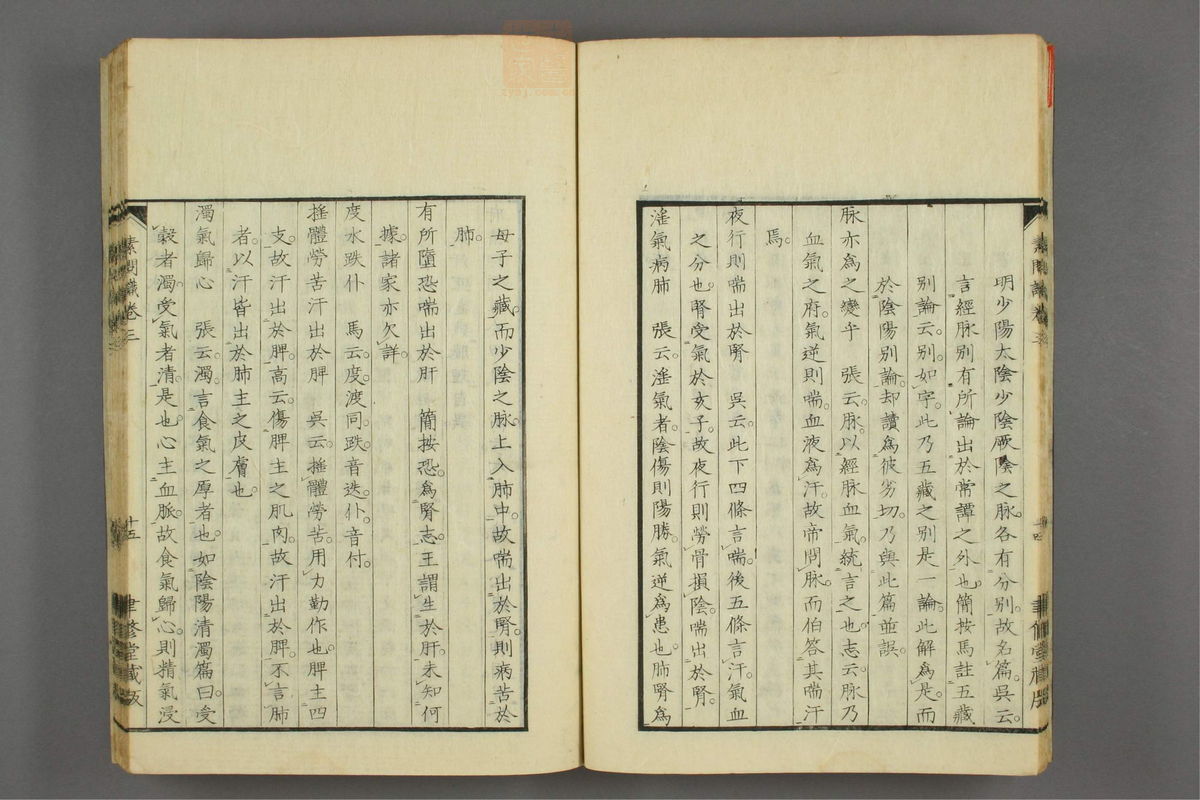 明少陽太陰少陰厥陰之脉。各有分別。故名篇。吳云。
言經脉別有所論出於常譚之外也。簡按馬註五藏
別論云。別。如字。此乃五藏之別是一論。此解為是。而
於陰陽別論。却讀為彼劣切。乃與此篇並誤。
脉亦為之變乎　張云。脉。以經脉血氣。統言之也。志云。脉乃
血氣之府。氣逆則喘。血液為汗。故帝問脉。而伯答其喘汗
焉。
夜行則喘出於腎　吳云。此下四條言喘。後五條言汗。氣血
之分也。腎受氣於亥子。故夜行則勞骨損陰。喘出於腎。
淫氣病肺　張云。淫氣者。陰傷則陽勝。氣逆為患也。肺腎為
母子之藏。而少陰之脉。上入肺中。故喘出於腎。則病苦於
肺。
有所墮恐喘出於肝　簡按恐。為腎志。王謂生於肝。未知何
據。諸家亦欠詳。
度水跌仆　馬云。度渡同。跌音迭。仆音付。
搖體勞苦汗出於脾　吳云。搖體勞苦。用力勤作也。脾主四
支。故汗出於脾。高云。傷脾主之肌肉。故汗出於脾。不言肺
者。以汗皆出於肺主之皮膚也。
濁氣歸心　張云。濁。言食氣之厚者也。如陰陽清濁篇曰。受
穀者濁。受氣者清。是也。心主血脈。故食氣歸心。則精氣浸
素問識卷三
十五
聿修堂藏版